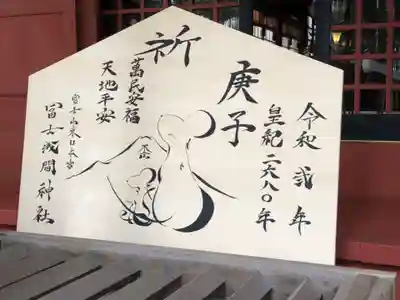 令和弐年
皇紀二六八〇年
庚子
祈
萬民安福
天地平安
冨士山東口本宮
冨士浅間神社